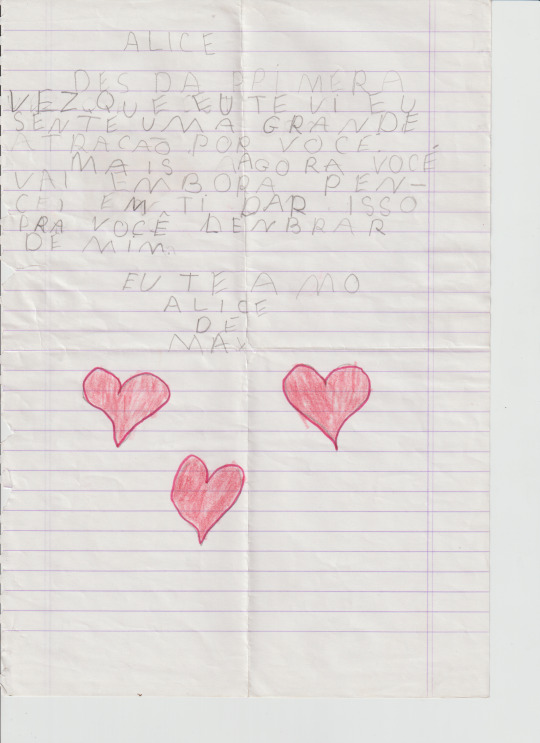 ALICE
DES DA PPIMERA
VEZ QUE EU TE VI EU
SENTE UMA GRANDE
ATRACAÕ POR VOCÊ.
MAIS AGORA VOCÊ
VAI EMBORA PEN-
CEI EM TI DAR ISSO
PRA VOCÊ LENBRAR
DE MIM.
EU TE AMO
ALICE
DE
MAX